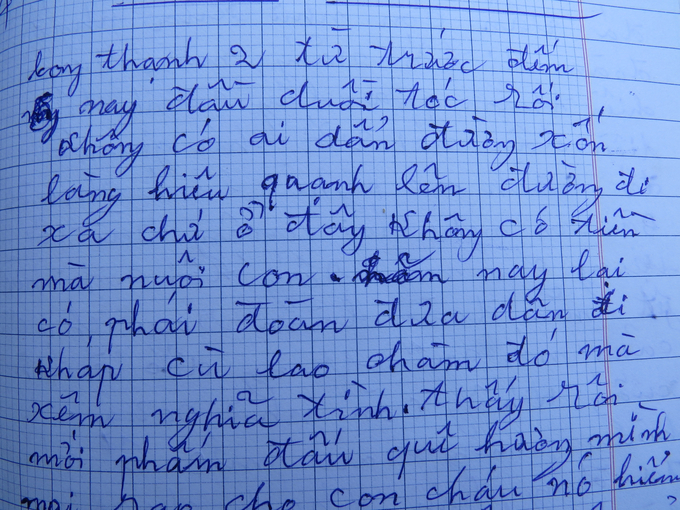 kong thạnh 2 từ trước đếm
nay đầu đuôi tóc rồi
không có ai dẩn đường xốn
làng hiếu quanh lên đường đi
xa chứ ở đây không có tiền
mà nuôi con nay lại
có phái đoàn đưa dân đi
khap cù lao chàm đó mà
xếm nghĩa tình. thấy rồi
mới phấn đấu quê hường mình
cho con cháu nó hiểm